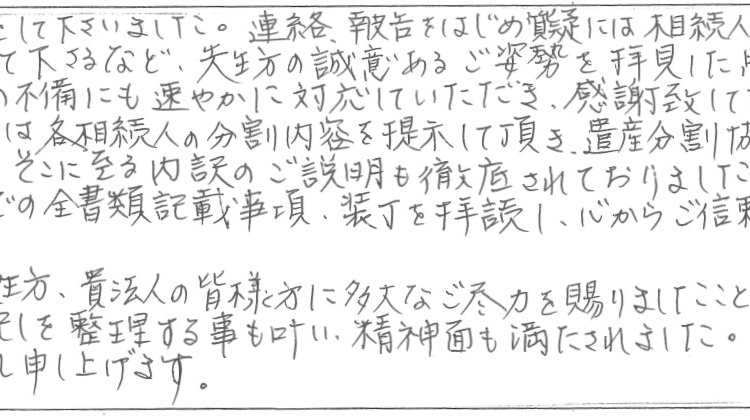 として下さいました。連絡、報告をはじめ質疑には相続人
て下さるなど、先生方の誠意あるご姿勢を拝見した
の不備にも速やかに対応していただき、感謝致して
は各相続人の分割内容を提示して頂き、遺産分割協
そこに至る内訳のご説明も徹底されておりました
での全書類記載事項、装丁を拝読し、心からご信頼
生方、貴法人の皆様方に多大なご尽力を賜りましたこと
しを整理する事も叶い、精神面も満たされました。
し申し上げます。